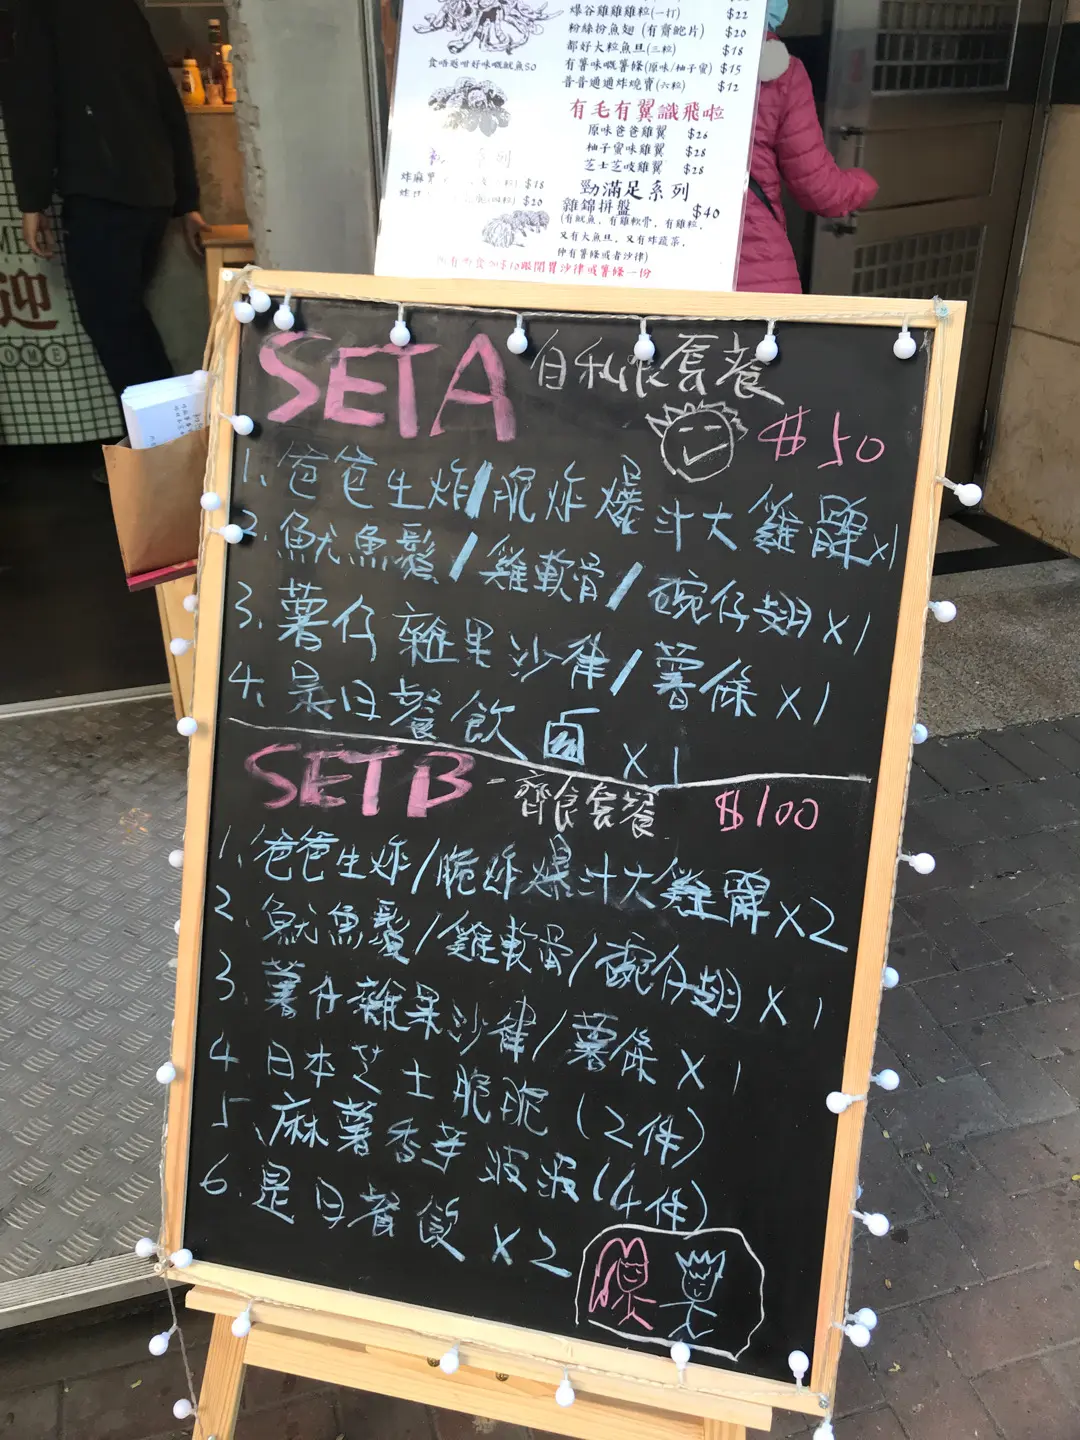 爆谷雞雞雞粒(一打) $22
粉絲扮魚翅 (有齋鮑片) $20
都好大粒魚旦(三粒) $18
有薯味嘅薯條(原味/柚子蜜) $15
普普通通炸燒賣(六粒) $12
食唔返咁好味嘅魷魚SO
有毛有翼識飛啦
原味爸爸雞翼 $26
柚子蜜味雞翼 $28
芝士芝吱雞翼 $28
系列
炸麻 $18
炸 $20
勁滿足系列
雜錦拼盤 $40
(有魷魚，有雞軟骨，有雞粒，
又有大魚旦，又有炸蔬菜，
仲有薯條或者沙律)
$10跟開胃沙律或薯條一份
迎
OME
SET A 自私怪套餐
$50
1. 爸爸生炸/脆炸爆汁大雞髀x1
2. 魷魚鬚/雞軟骨/碗仔翅x1
3. 薯仔雜果沙律/薯條x1
4. 是日餐飲 x1
SET B - 齊食套餐 $100
1. 爸爸生炸/脆炸爆汁大雞髀x2
2. 魷魚鬚/雞軟骨/碗仔翅x1
3. 薯仔雜果沙律/薯條x1
4. 日本芝士脆脆 (2件)
5、麻薯香芋波波(4件)
6. 是日餐飲 x2